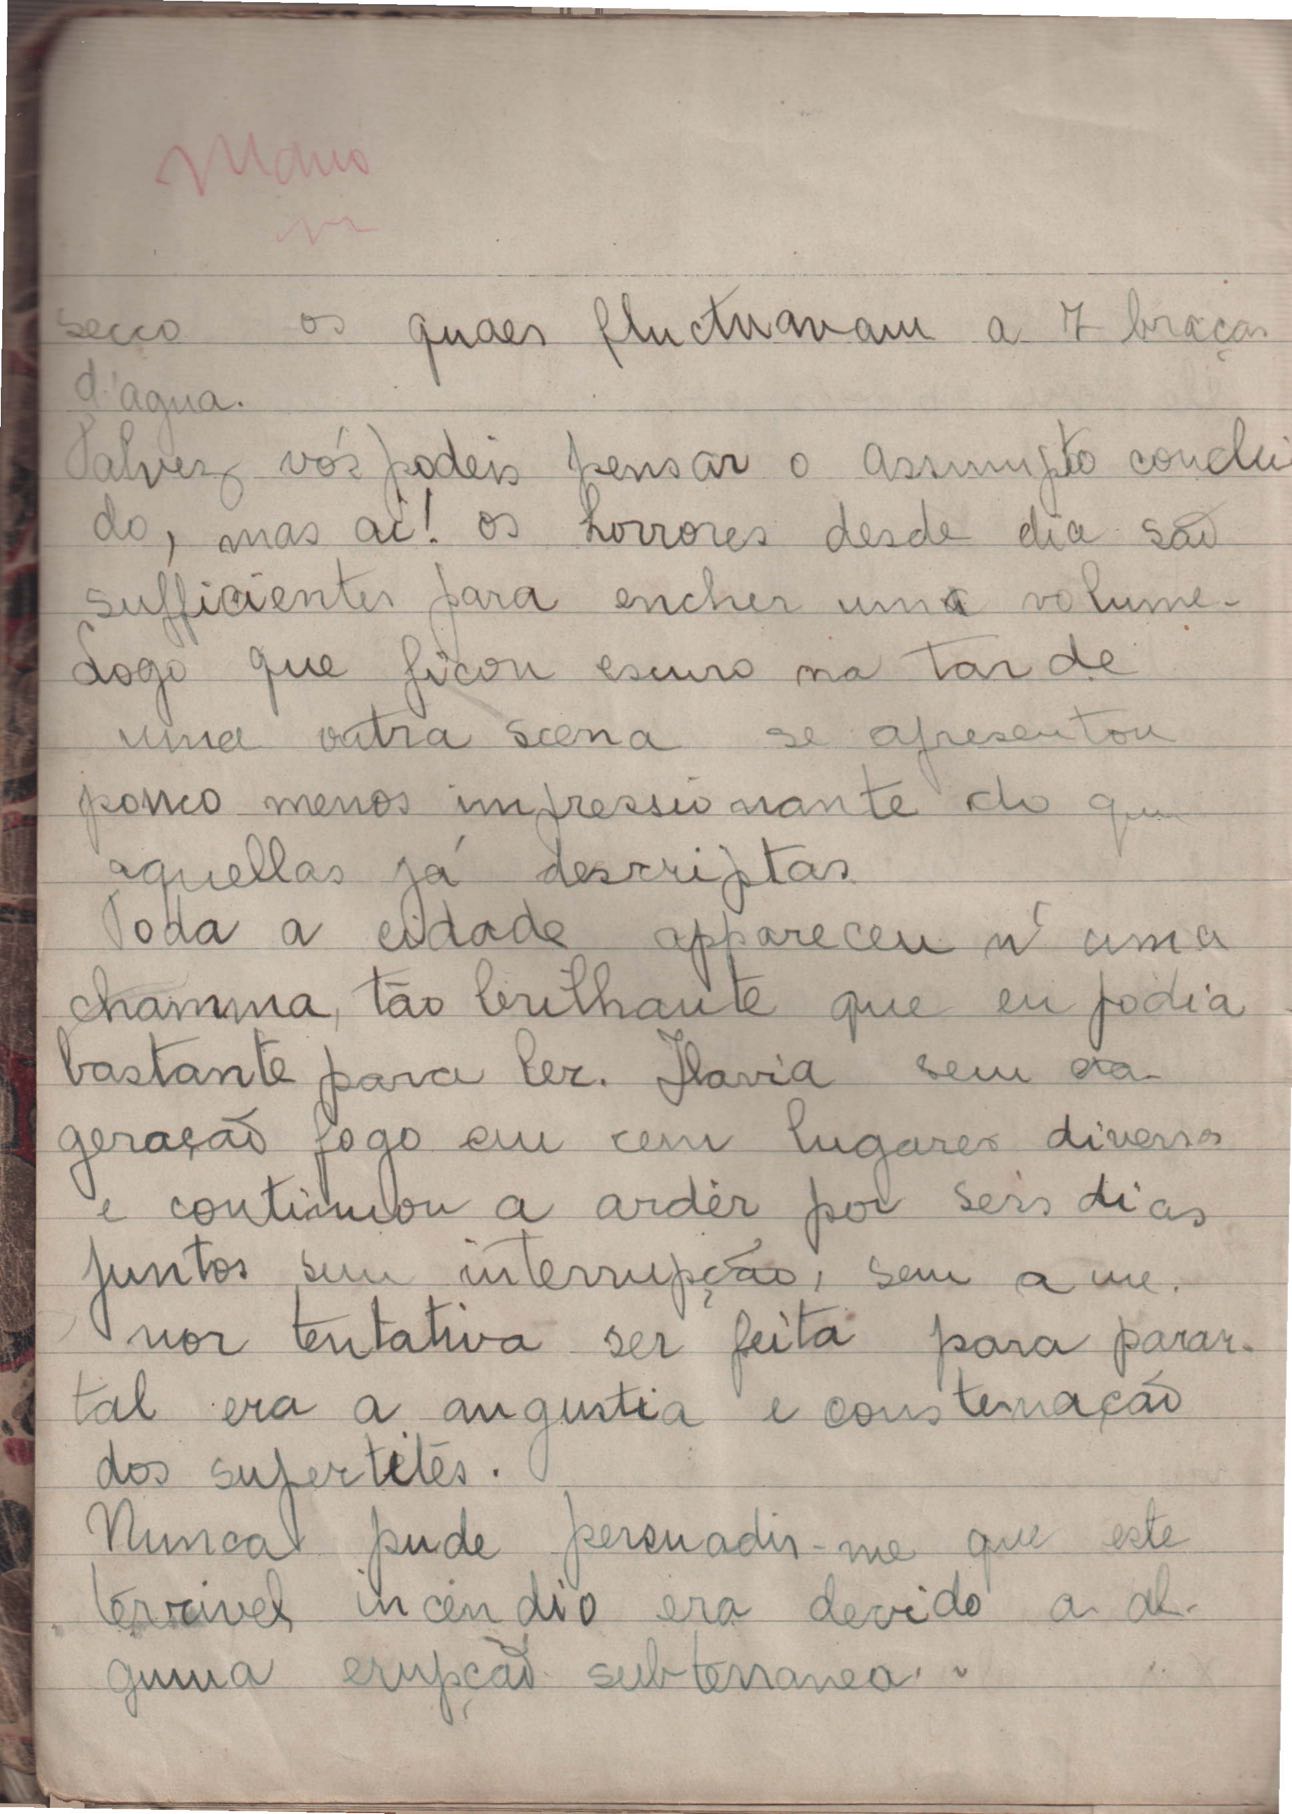 secco os quaes fluctuavam a 7 braças
d'agua.
Talvez vós podeis pensar o assumpto conclui
do, mas ai! os horrores desde dia são
sufficientes para encher uma volume.
Logo que ficou escuro na tarde
uma outra scena se apresentou
pouco menos impressionante do que
aquellas já descriptas
Toda a cidade appareceu n'uma
chamma, tão brilhante que eu podia
bastante para ler. Havia sem exa-
geração fogo em cem lugares diversos
e continuou a ardêr por seis dias
juntos sem interrupção, sem a me-
nor tentativa ser feita para parar.
tal era a angustia e consternação
dos supertites.
Nunca pude persuadir-me que este
terrivel incêndio era devido a al-
guma erupção subterranea.